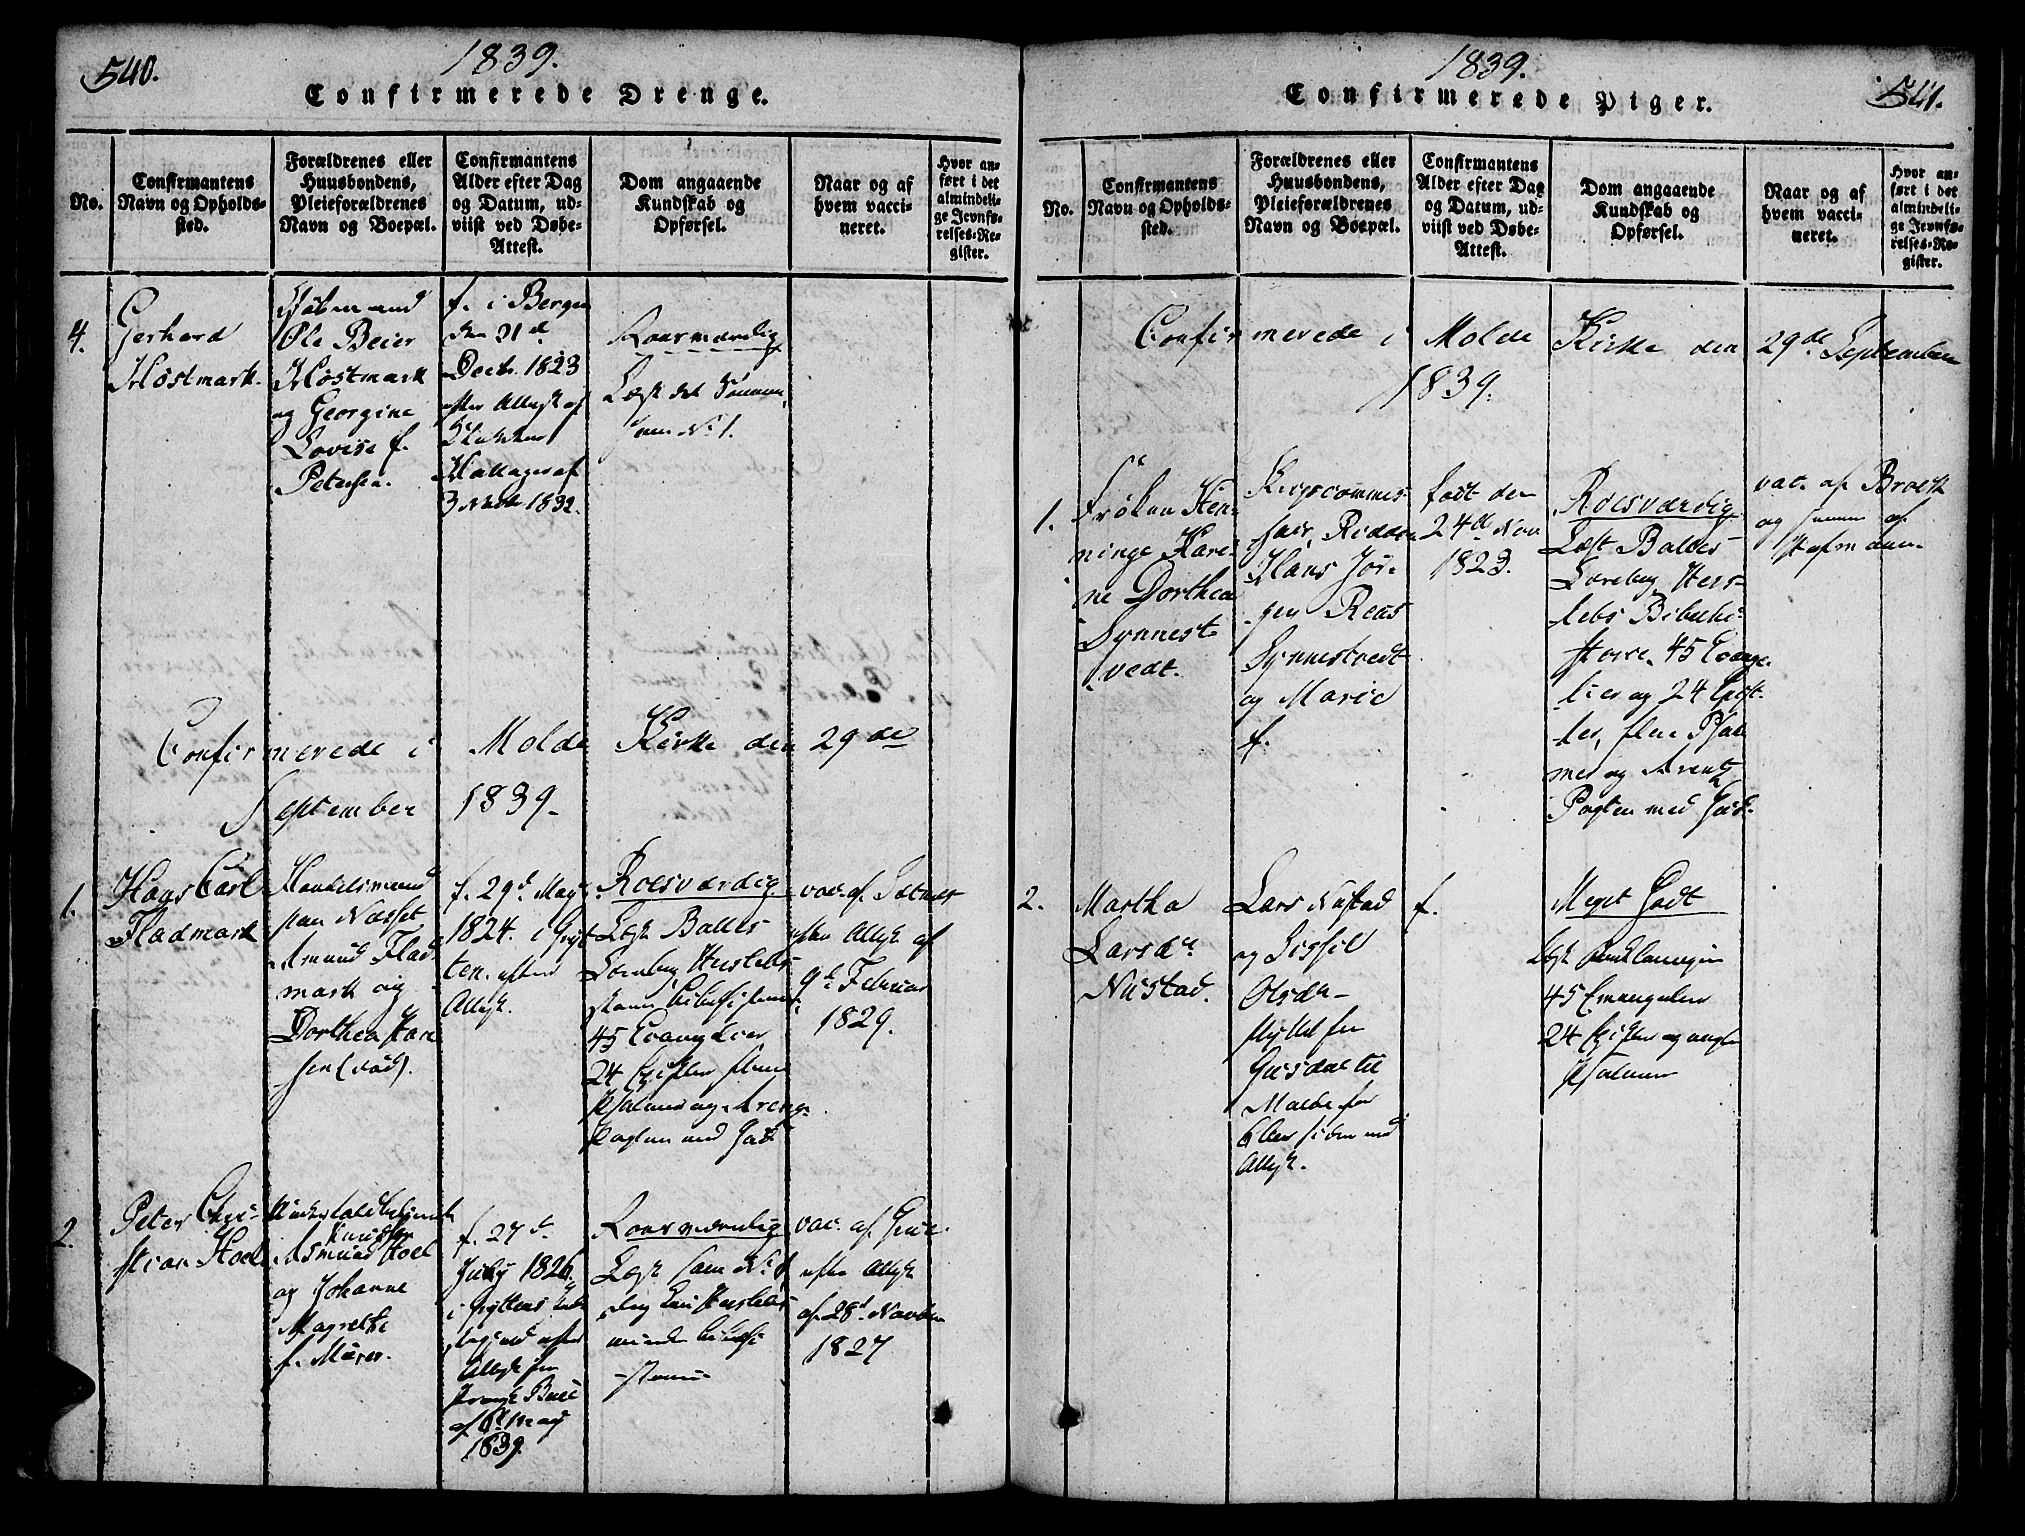 540.
1839.
Confirmerede Drenge.
No.
Confirmantens
Navn og Opholds-
sted.
Forældrenes eller
Huusbondens,
Pleieforældrenes
Navn og Boepæl.
Confirmantens
Alder efter Dag
og Datum, ud-
viist ved Døbe-
Attest.
Dom angaaende
Kundskab og
Opførsel.
Naar og af
hvem vacci-
neret.
Hvor an-
ført i det
almindeli-
ge Jevnfø-
relses-Re-
gister.
4.
Gerhard
Høstmark.
Ole Beier
Høstmark
og Georgine
Lovise f.
Petersen.
f. i Bergen
den 31d
Decbr. 1823
efter Attest af
Hallager af
1832.
Roesværdig
Læst det Samme
som No 1.
Confirmerede i Molde Kirke den 29de
September 1839.
1.
Hans Carl
Fladmark
Handelsmand
paa Næsset
Amund Flad
mark og
Dorthea Han
sen (død).
f. 29d May
1824. i Gryt
ten. efter
Attest.
Roesværdig
Læst Balles
Lærebog Herslebs
større bibelhistorie
45 Evangelier
24 Epistler flere
Psalmer og Arentz
Pagten med Gud
vac. af
efter Attest af
9de Februar
1829.
2.
Peter Chri-
stian Hoel
Asmund Hoel
og Johanne
Magrethe
f. Mürer.
f. 27d
July 1826
i Gryttens
efter
Attest fra
Provst Buse
af 6d May
1839.
Roesværdig
Læst som No 1
dog kun Herslebs
mindre bibelhi
storie
vac. af
efter Attest
af 28d Novbr
1827
1839.
541.
Confirmerede Piger.
No.
Confirmantens
Navn og Opholds-
sted.
Forældrenes eller
Huusbondens,
Pleieforældrenes
Navn og Boepæl.
Confirmantens
Alder efter Dag
og Datum, ud-
viist ved Døbe-
Attest.
Dom angaaende
Kundskab og
Opførsel.
Naar og af
hvem vacci-
neret.
Hvor an-
ført i det
almindeli-
ge Jevnfø-
relses-Re-
gister.
Confirmerede i Molde Kirke den 29de September
1839.
1.
Frøken Hen-
ninge Kari-
ne Dorthea
Synnest
vedt.
Krigscommis-
sair, Ridder
Hans Jør-
gen Reas
Synnestvedt
og Marie
f.
født den
24de Nov
1823.
Roesværdig
Læst Balles
Lærebog, Hers-
lebs Bibelhi-
storie, 45 Evange-
lier og 24 Epist-
ler, flere Psal
mer og Arentz
Pagten med Gud.
vac. af Broch
og
2.
Martha
Larsdr
Nustad.
Lars Nustad
og Sissel
Olsdr
flyttet fra
til
Molde for
6 Aar siden med
Attest.
f.
Meget Godt
Læst
45 Evangelier
24 Epistler og nogle
Psalmer